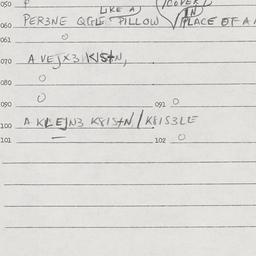 050 P LIKE A (COVER)
060 PER3NE QGLE PILLOW / IN PLACE OF A
061 O
070 A VEJX3 KISTN,
080 O
090 O 091 O
100 A KLEJN3 K8ISTN / K8IS3LE
101 102 O